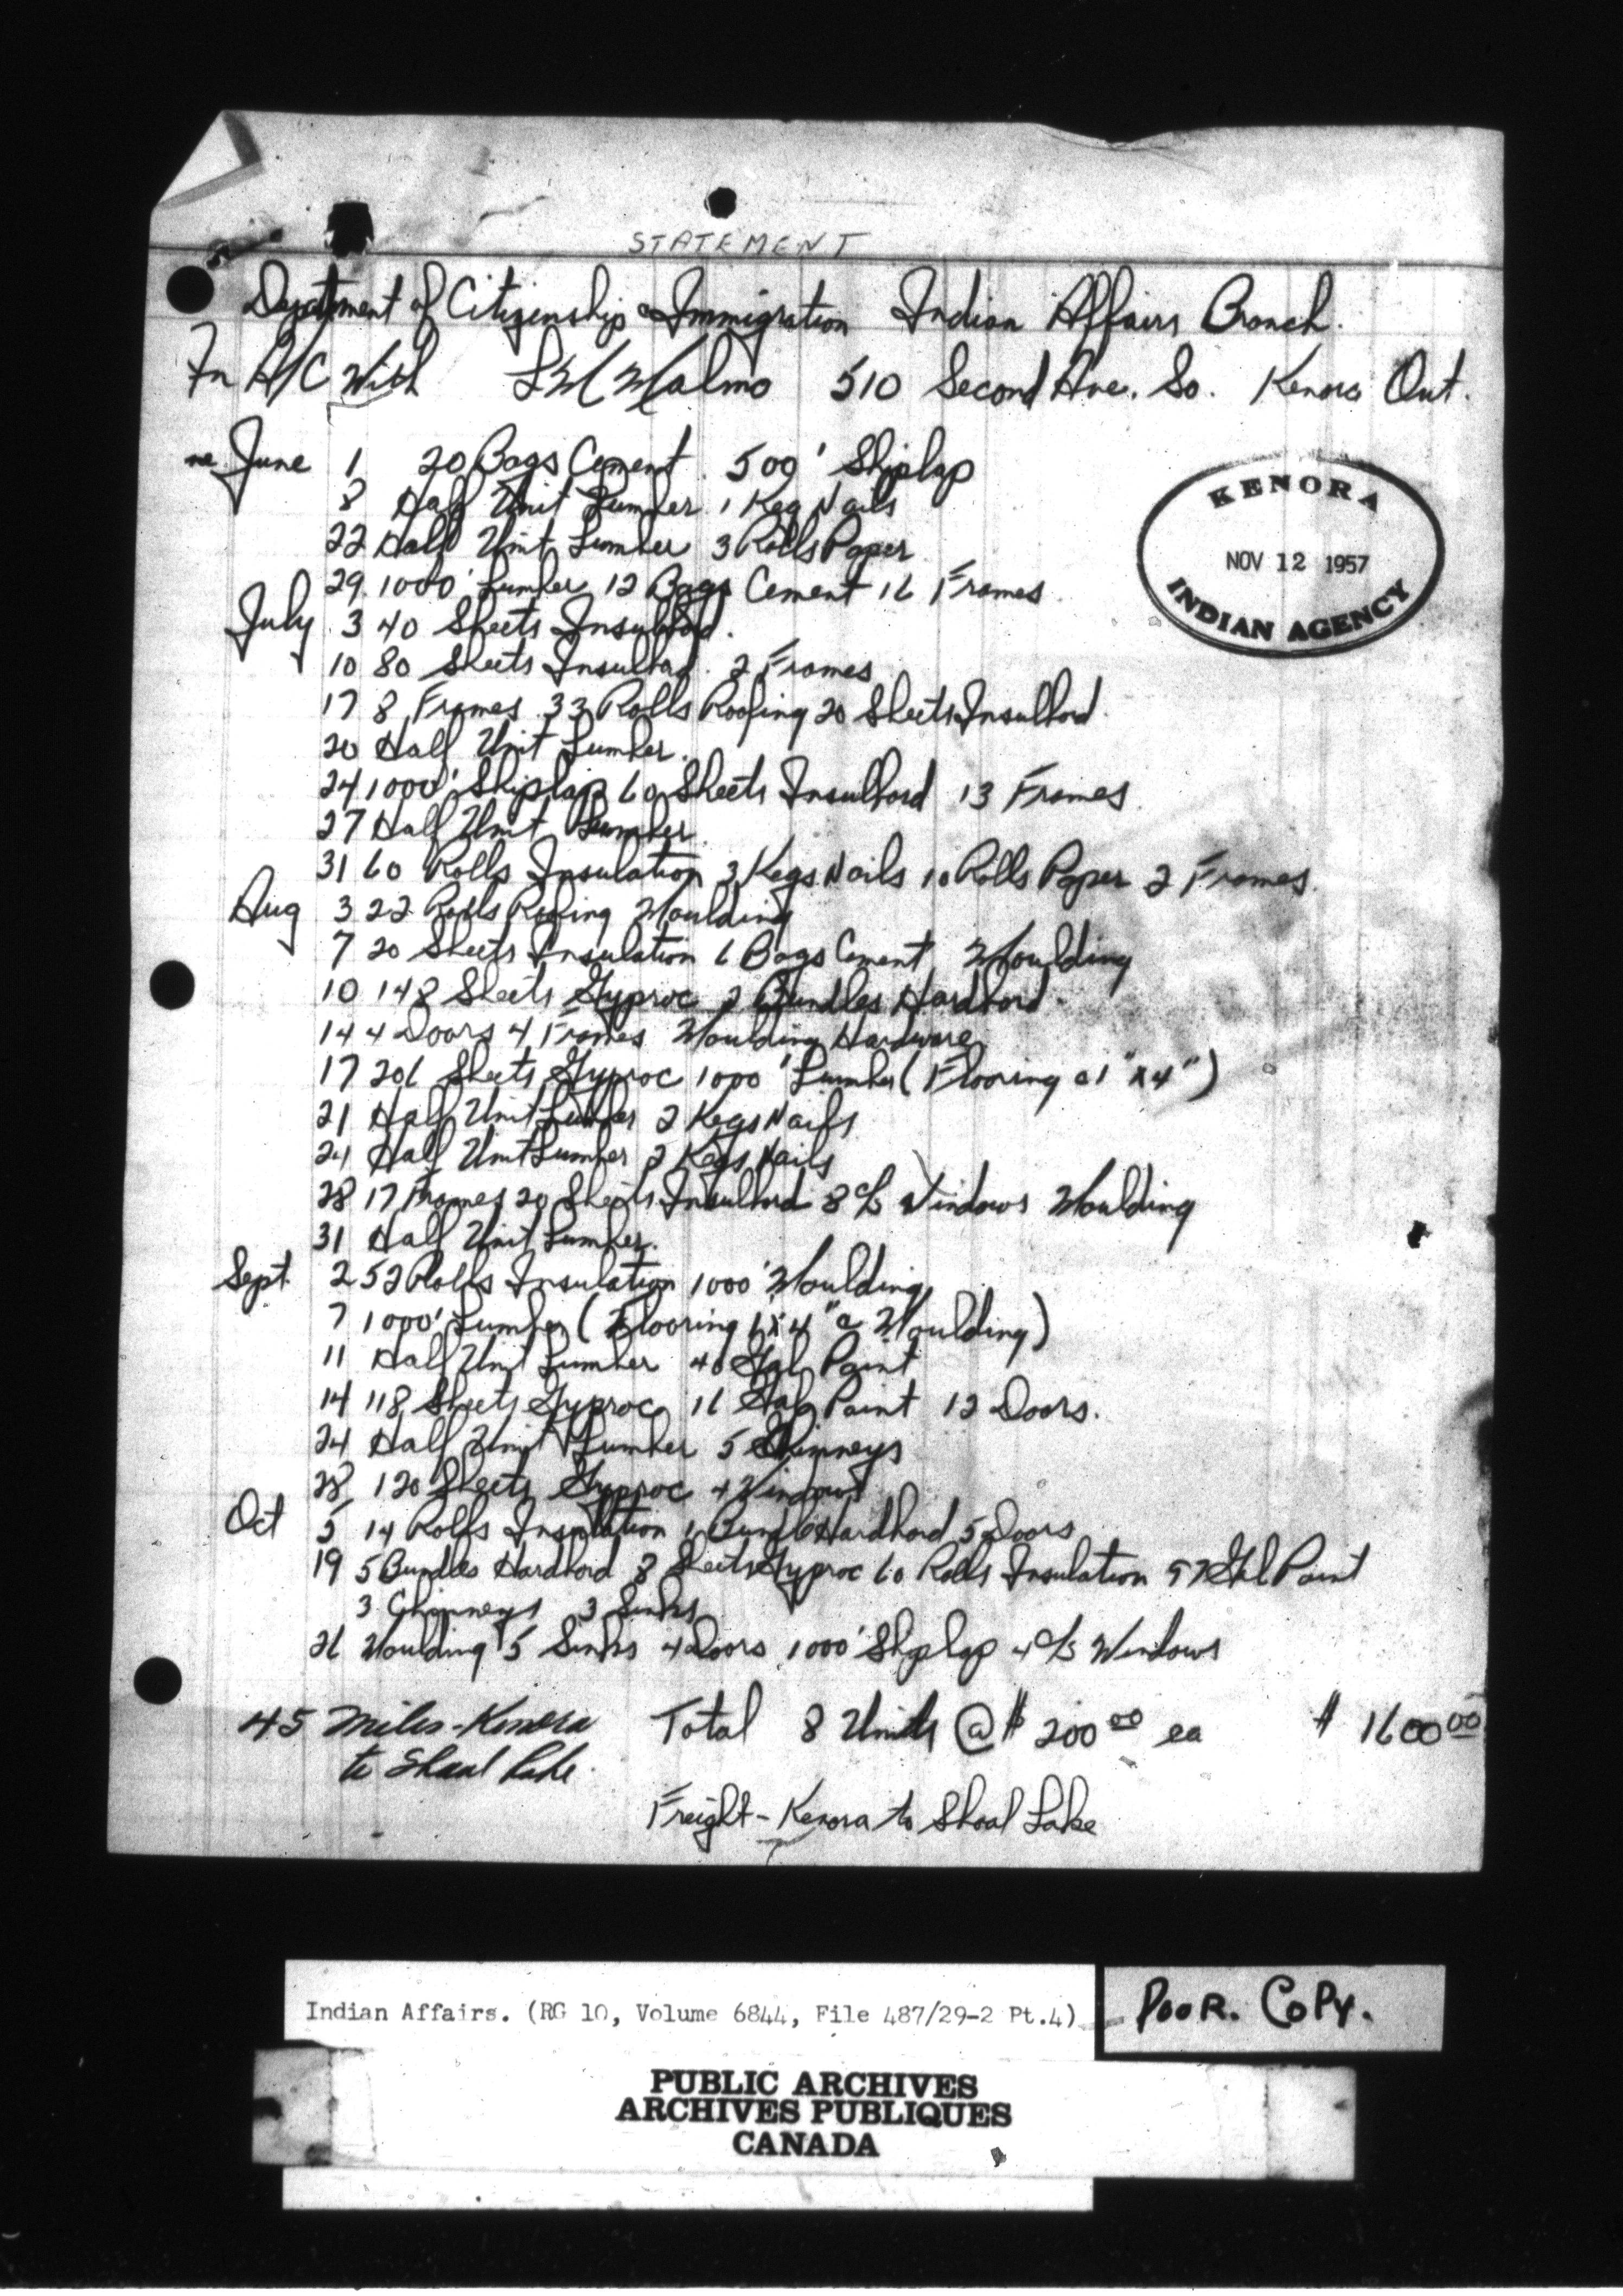 STATEMENT
Department of Citizenship & Immigration Indian Affairs Branch.
In A/C With L M Malmo 510 Second Ave. So. Kenora Ont.
June 1 20 Bags Cement 500' Shiplap
8 Half Unit Lumber 1 Keg Nails
22 Half Unit Lumber 3 Rolls Paper
29 1000' Lumber 12 Bags Cement 16 Frames
July 3 40 Sheets Insulbord.
10 80 Sheets Insulbord. 2 Frames
17 8 Frames 33 Rolls Roofing 20 Sheets Insulbord.
20 Half Unit Lumber.
24 1000' Shiplap 60 Sheets Insulbord 13 Frames
27 Half Unit Lumber.
31 60 Rolls Insulation 3 Kegs Nails 10 Rolls Paper 2 Frames.
Aug 3 22 Rolls Roofing Moulding
7 20 Sheets Insulation 6 Bags Cement Moulding
10 148 Sheets Gyproc 2 Bundles Hardbord.
14 4 Doors 4 Frames Moulding Hardware
17 206 Sheets Gyproc 1000' Lumber (Flooring & 1"x4")
21 Half Unit Lumber 2 Kegs Nails
24 Half Unit Lumber 2 Kegs Nails
28 17 Frames 20 Sheets Insulbord 8 c/s Windows Moulding
31 Half Unit Lumber.
Sept. 2 52 Rolls Insulation 1000' Moulding
7 1000' Lumber (Flooring 1x4" & Moulding)
11 Half Unit Lumber 40 Gals Paint
14 118 Sheets Gyproc 16 Gals Paint 12 Doors.
24 Half Unit Lumber 5 Chimneys
28 120 Sheets Gyproc 4 Windows
Oct 5 14 Rolls Insulation 1 Bundle Hardbord 5 Doors
19 5 Bundles Hardbord 8 Sheets Gyproc 60 Rolls Insulation 57 Gal Paint
3 Chimneys 3 Sinks
26 Moulding 5 Sinks 4 Doors 1000' Shiplap 4 c/s Windows
45 Miles - Kenora Total 8 Units @ $ 200 00 ea $ 1600 00
to Shoal Lake.
Freight - Kenora to Shoal Lake
KENORA
NOV 12 1957
INDIAN AGENCY
Indian Affairs. (RG 10, Volume 6844, File 487/29-2 Pt.4)
POOR. COPY.
PUBLIC ARCHIVES
ARCHIVES PUBLIQUES
CANADA